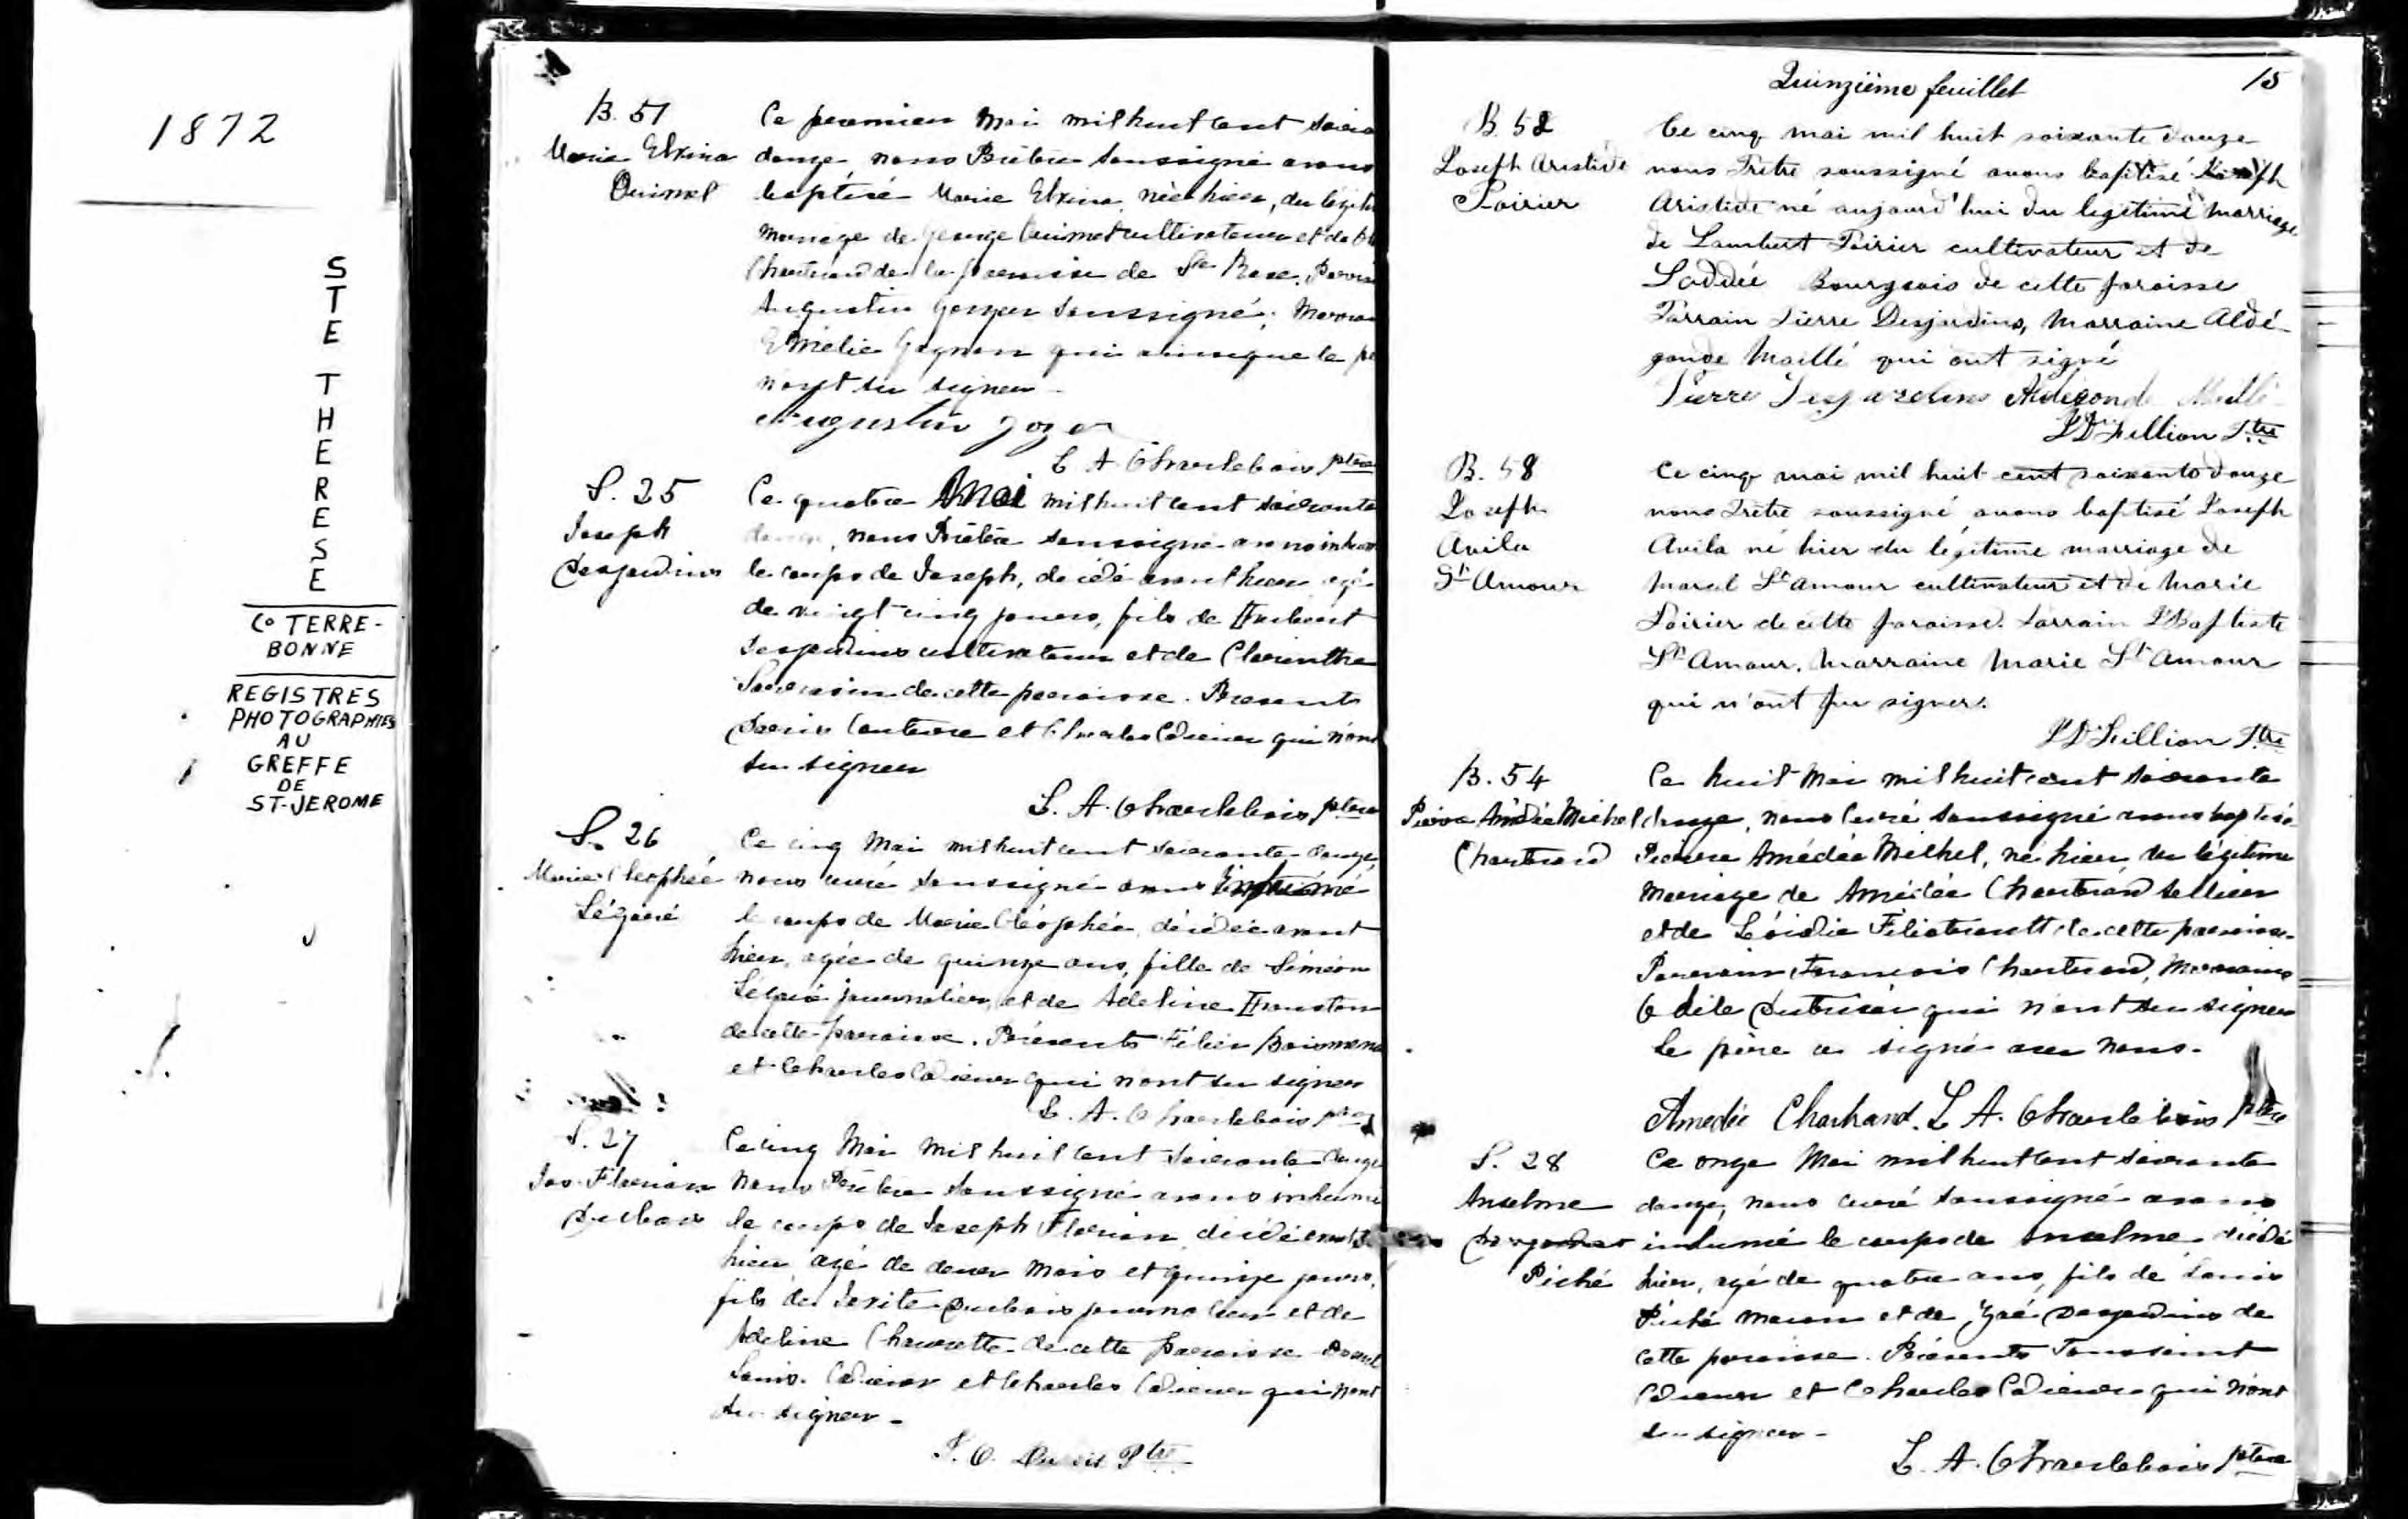 1872
STE THERESE
Co TERRE-
BONNE
REGISTRES
PHOTOGRAPHIES
AU
GREFFE
DE
ST-JEROME
B. 51
Marie Elxina
Ouimet
Ce premier Mai mil huit cent soixa
douze nous Prêtre soussigné avons
baptisé Marie Elxina, née hier, du légiti
mariage de George Ouimet cultivateur et de
Chartrand de la paroisse de Ste Rose. Parrai
Augustin soussigné; Marrai
Emélie Gagnon qui ainsi que le pè
n'ont su signer
Augustin
L. A. Charlebois ptre
S. 25
Joseph
Desjardins
Ce quatre Mai mil huit cent soixante
douze, nous Prêtre soussigné avons inhu
le corps de Joseph, décédé avant hier agé
de vingt cinq jours, fils de
Desjardins cultivateur et de
de cette paroisse. Présents
et Charles Cadieux qui n'ont
su signer
L. A. Charlebois ptre
S. 26
Marie Cléophée
Légaré
Ce cinq Mai mil huit cent soixante douze,
nous curé soussigné avons inhumé
le corps de Marie Cléophée, décédée avant
hier, agée de quinze ans, fille de Siméon
Légaré journalier, et de Adeline
de cette paroisse. Présents Félix
et Charles Cadieux qui n'ont su signer
L. A. Charlebois ptre
S. 27
Jos. Florian
Dubois
Ce cinq Mai mil huit cent soixante douze
nous Prêtre soussigné avons inhumé
le corps de Joseph Florian, décédé avant
hier agé de deux mois et quinze jours,
fils de Dubois journalier et de
Adeline de cette paroisse
Louis Cadieux et Charles Cadieux qui n'ont
su signer -
Ptre
Quinzième feuillet 15
B. 52
Joseph Aristide
Poirier
Ce cinq mai mil huit soixante douze
nous Prêtre soussigné avons baptisé Joseph
Aristide né aujourd'hui du legitime marriage
de Lambert Poirier cultivateur et de
Bourgeois de cette paroisse
Parrain Pierre Desjardins, Marraine Aldé-
gonde Maillé qui ont signé
Pierre Desjardins Aldégonde Maillé
Fillion Ptre
B. 58
Joseph
Avila
St Amour
Ce cinq mai mil huit cent soixante douze
nous Prêtre soussigné, avons baptisé Joseph
Avila né hier du légitime marriage de
Marcel St Amour cultivateur et de Marie
Poirier de cette paroisse. Parrain J Baptiste
St Amour. Marraine Marie St Amour
qui n'ont pu signer.
Fillion Ptre
B. 54
Pierre Amédée Michel
Chartrand
Ce huit Mai mil huit cent soixante
douze, nous Curé soussigné avons baptisé
Pierre Amédée Michel, né hier du légitime
mariage de Amédée Chartrand sellier
et de Filiatrault de cette paroisse.
Parrain François Chartrand, Marraine
Odile qui n'ont su signer
Le père a signé avec nous.
Amedée Chartrand. L. A. Charlebois ptre
S. 28
Anselme
Piché
Ce onze Mai mil huit cent soixante
douze, nous curé soussigné avons
inhumé le corps de Anselme décédé
hier, agé de quatre ans, fils de Louis
Piché et de Desjardins de
cette paroisse. Présents Toussaint
Cadieux et Charles Cadieux qui n'ont
su signer -
L. A. Charlebois ptre